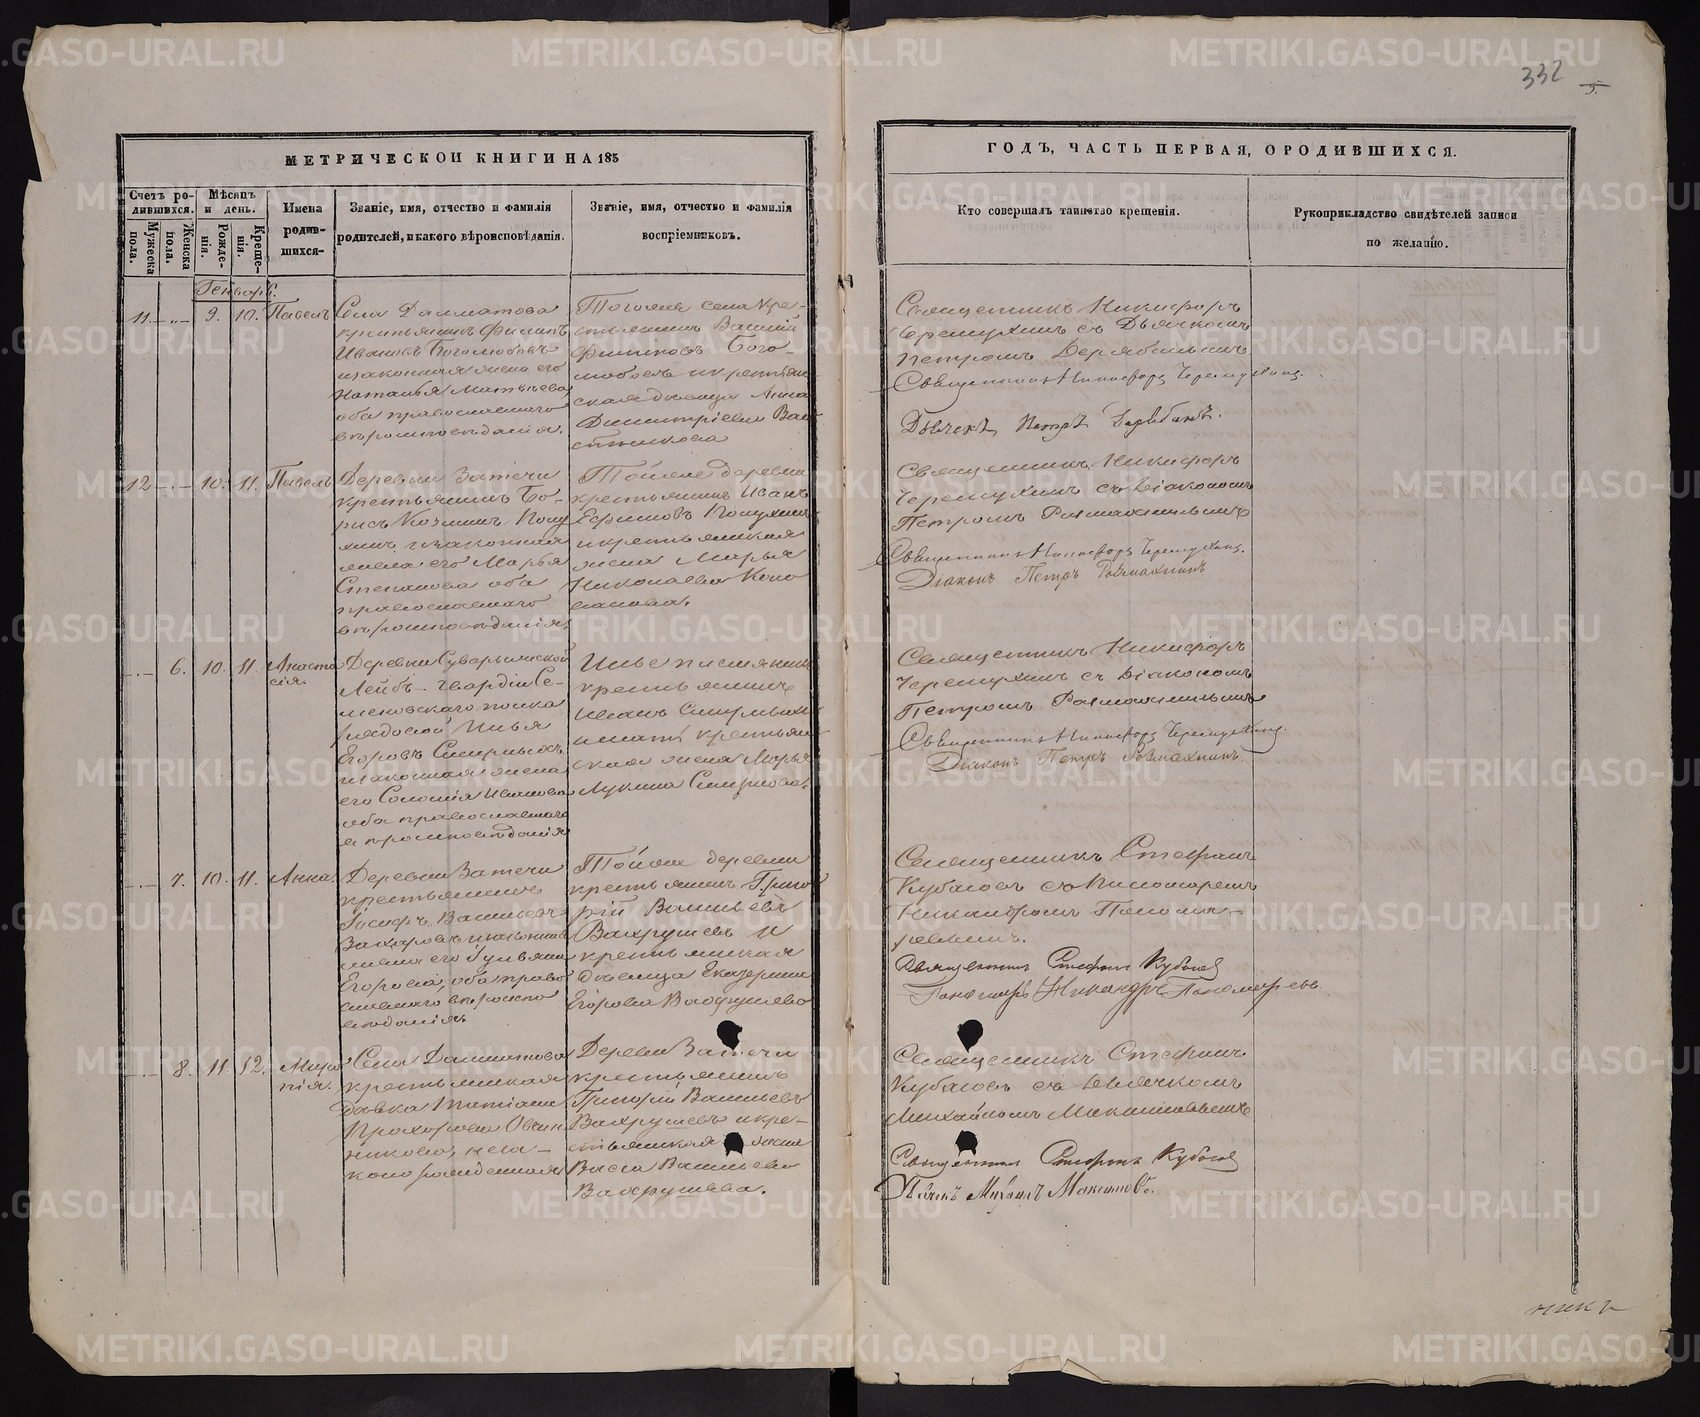 332
5.
МЕТРИЧЕСКОЙ КНИГИ НА 185
ГОДЪ, ЧАСТЬ ПЕРВАЯ, О РОДИВШИХСЯ.
Счетъ ро-
дившихся.
Мужеска
пола.
Женска
пола.
Мѣсяцъ
и день.
Рожде-
нія.
Креще-
нія.
Имена
родив-
шихся
Званіе, имя, отчество и фамилія
родителей, и какого вѣроисповѣданія.
Званіе, имя, отчество и фамилія
воспріемниковъ.
Кто совершалъ таинство крещенія.
Рукоприкладство свидѣтелей записи
по желанію.
Генварь.
11. 9. 10. Павелъ
Села Далматова
крестьянинъ Филипъ
Ивановъ Боголюбовъ
и законная жена его
Наталья Матвѣева
оба православнаго
вѣроисповѣданія.
Тогоже села кре-
стьянинъ Василій
Филиповъ Бого-
любовъ и крестьян
ская дѣвица Анна
Димитріева
Священникъ Никифоръ
Черемухинъ съ Дьячкомъ
Петромъ Дерябинымъ
Священникъ Никифоръ Черемухинъ.
Дьячекъ Петръ Дерябинъ.
12 10. 11. Павелъ
Деревни Затечи
крестьянинъ Бо-
рисъ Козминъ
и законная
жена его Марья
Степанова оба
православнаго
вѣроисповѣданія.
Тойже деревни
крестьянинъ Исакъ
Ефимовъ
и крестьянская
жена Марья
Николаева Коно
валова.
Священникъ Никифоръ
Черемухинъ съ Діакономъ
Петромъ
Священникъ Никифоръ Черемухинъ.
Діаконъ Петръ
6. 10. 11. Анаста
сія.
Деревни Суварышской
Лейбъ-Гвардіи Се-
меновскаго полка
рядовой Илья
Егоровъ Смирныхъ
и законная жена
его Соломія Иванова
оба православнаго
вѣроисповѣданія
крестьянинъ
Иванъ Смирныхъ
крестьян
ская жена Марья
Лукина Смирнова.
Священникъ Никифоръ
Черемухинъ съ Діакономъ
Петромъ
Священникъ Никифоръ Черемухинъ.
Діаконъ Петръ
7. 10. 11. Анна.
Деревни Затечи
крестьянинъ
Іосифъ Васильевъ
Захаровъ и законная
жена его Гульяна
Егорова, оба право
славнаго вѣроиспо
вѣданія.
Тойже деревни
крестьянинъ Григо
рій Васильевъ
Вахрушевъ и
крестьянская
дѣвица Екатерина
Егорова Вахрушева
Священникъ Стефанъ
Кубасовъ съ Пономаремъ
Никандромъ Понома-
ревымъ.
Священникъ Стефанъ Кубасовъ
Пономарь Никандръ Пономаревъ
8. 11. 12.
Села Далматова
крестьянская
дѣвка Татіана
Прохорова Овчин
никова, неза-
конорожденная
Деревни Затечи
крестьянинъ
Григорій Васильевъ
Вахрушевъ и кре-
стьянская
Васса Васильева
Вахрушева.
Священникъ Стефанъ
Кубасовъ съ Дьячкомъ
Михайломъ Максимовымъ
Священникъ Стефанъ Кубасовъ
Михаилъ Максимовъ.
никъ
METRIKI.GASO-URAL.RU